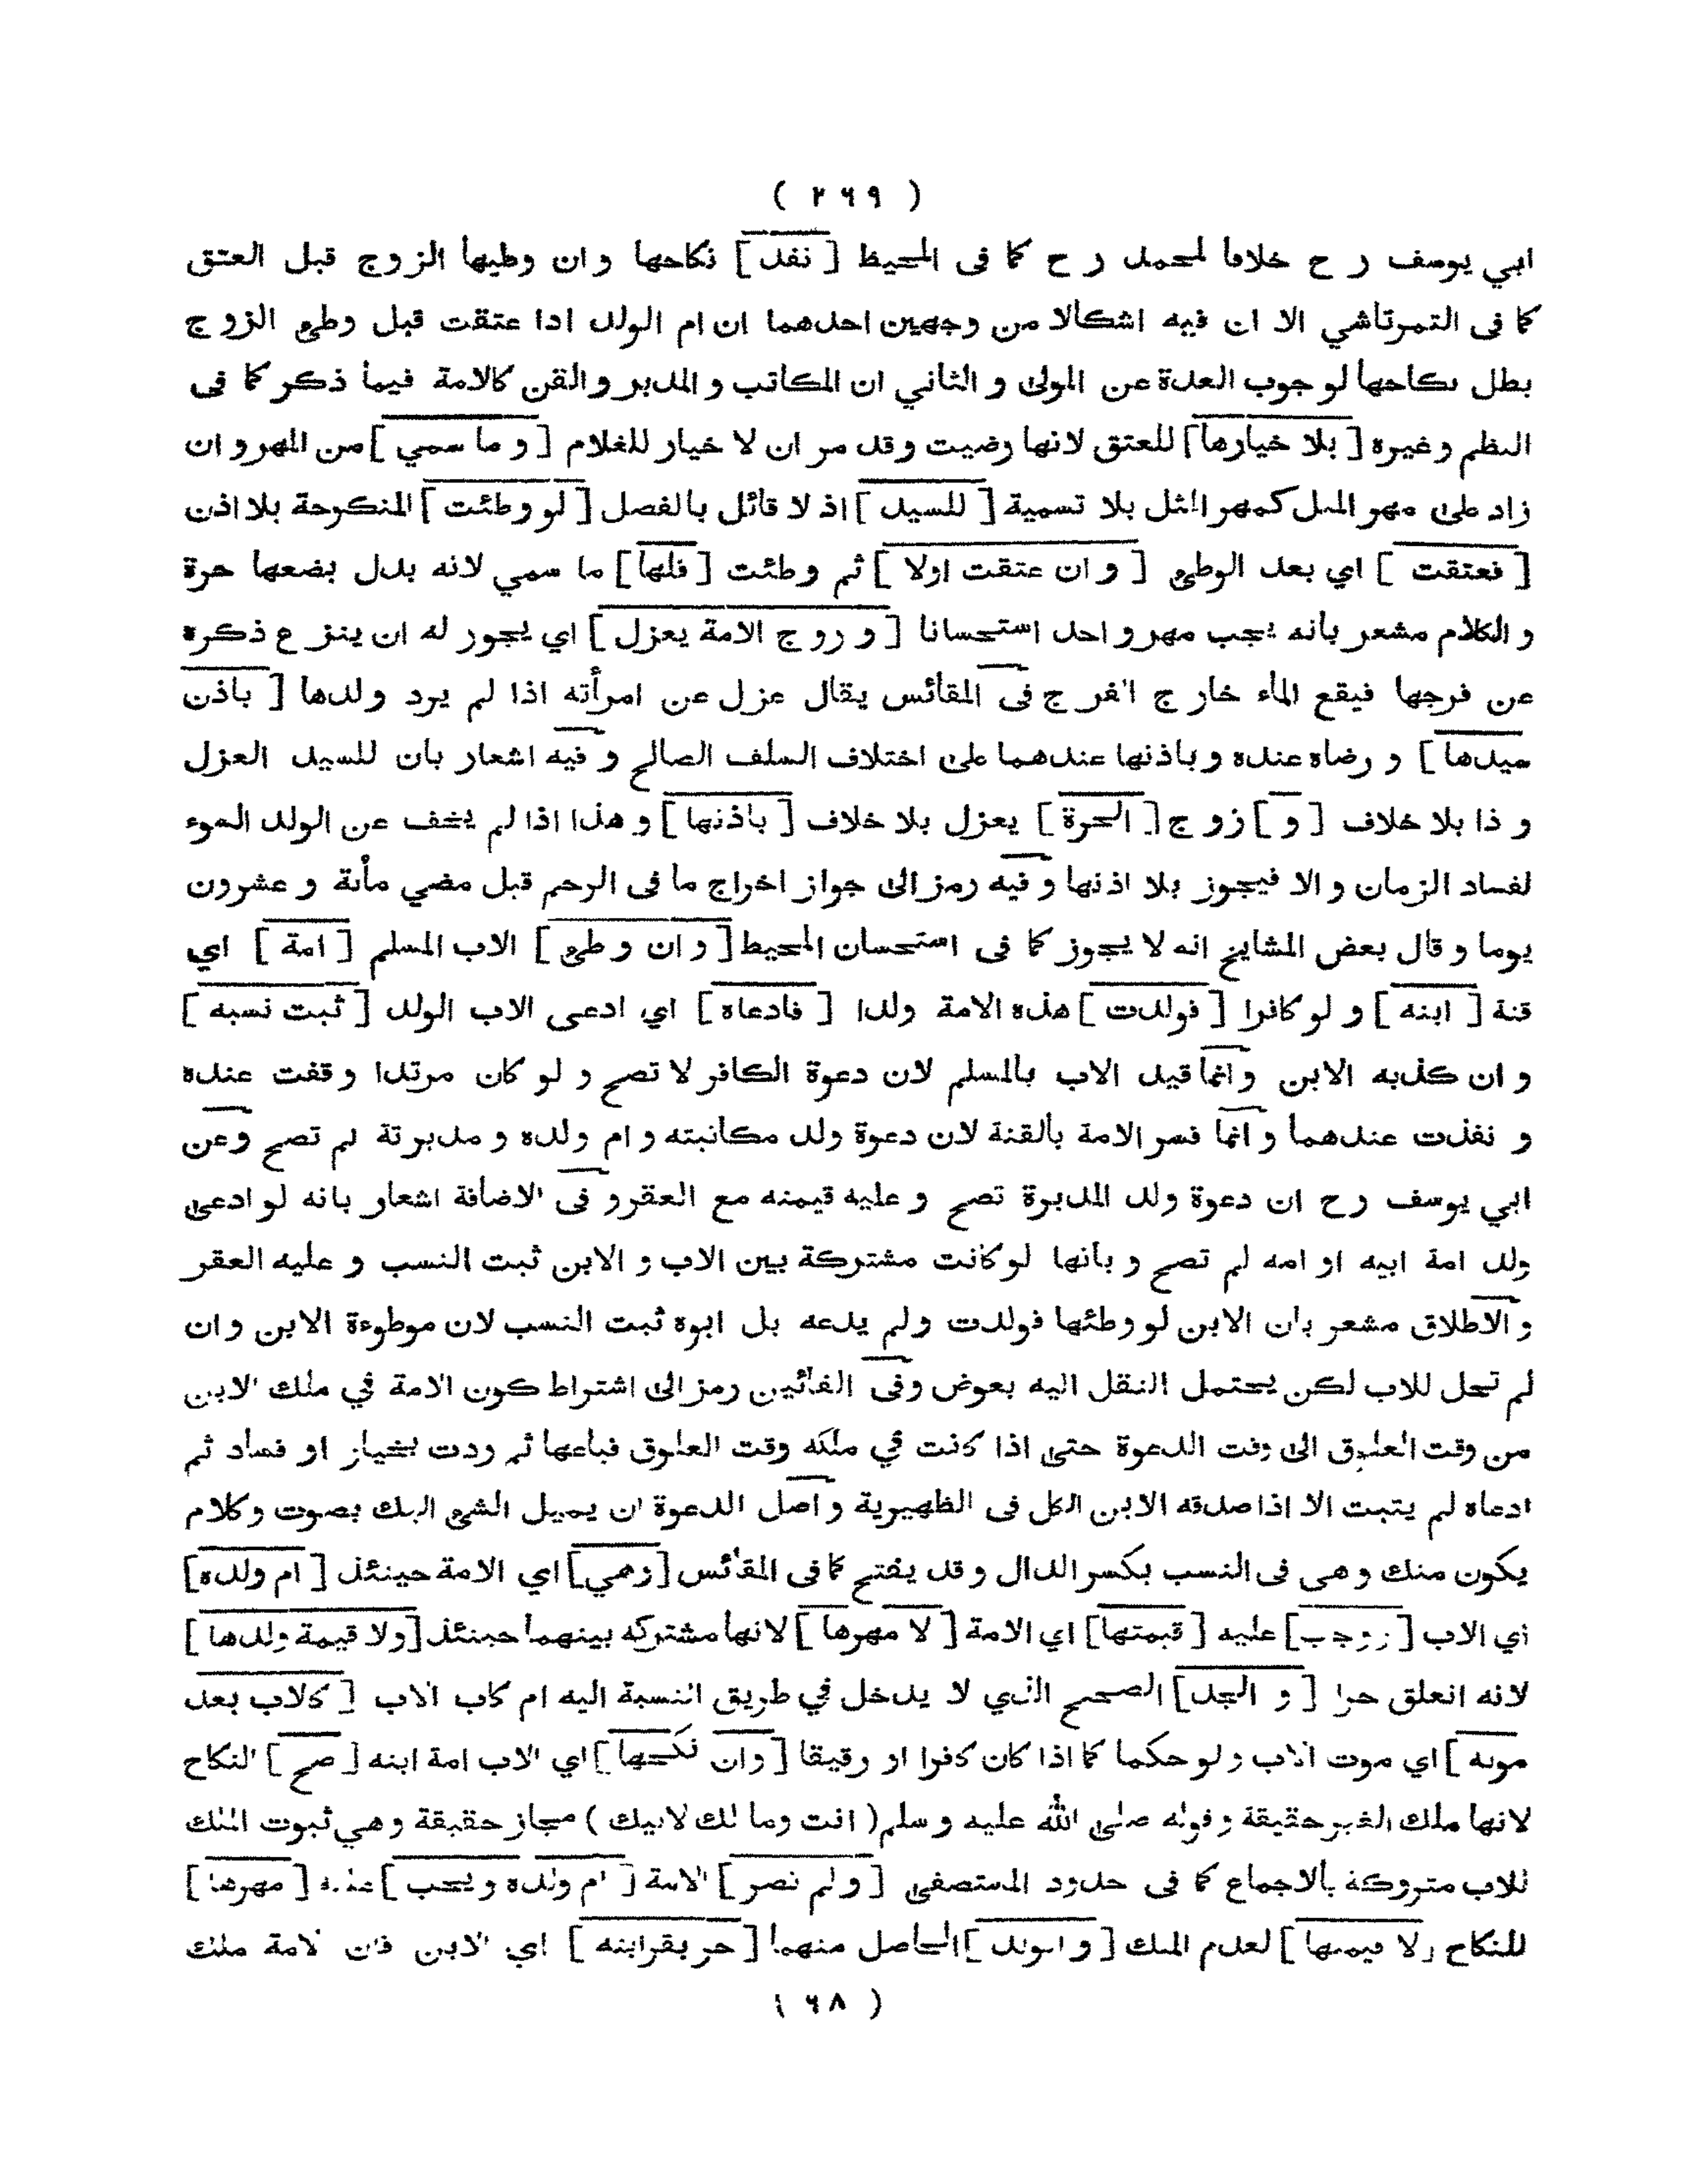 ( ٢٦٩ )
ابي يوسف رح خلافا لمحمد رح كما فى المحيط [ نفذ ] نكاحها وان وطيها الزوج قبل العتق
كما فى التمرتاشي الا ان فيه اشكالا من وجهين احدهما ان ام الولد اذا عتقت قبل وطى الزوج
بطل نكاحها لوجوب العدة عن المولى و الثاني ان المكاتب و المدبر و القن كالامة فيما ذكر كما فى
النظم وغيره [ بلا خيارها ] للعتق لانها رضيت وقد مر ان لا خيار للغلام [ و ما سمي ] من المهر وان
زاد على مهر المثل كمهر المثل بلا تسمية [ للسيد ] اذ لا قائل بالفصل [ لو وطئت ] المنكوحة بلا اذن
[ فعتقت ] اي بعد الوطى [ و ان عتقت اولا ] ثم وطئت [ فلها ] ما سمي لانه بدل بضعها حرة
و الكلام مشعر بانه يجب مهر واحد استحسانا [ و زوج الامة يعزل ] اي يجوز له ان ينزع ذكره
عن فرجها فيقع الماء خارج الفرج فى المقائس يقال عزل عن امرأته اذا لم يرد ولدها [ باذن
سيدها ] و رضاه عنده و باذنها عندهما على اختلاف السلف الصالح و فيه اشعار بان للسيد العزل
و ذا بلا خلاف [ و ] زوج [ الحرة ] يعزل بلا خلاف [ باذنها ] و هذا اذا لم يخف عن الولد السوء
لفساد الزمان و الا فيجوز بلا اذنها و فيه رمز الى جواز اخراج ما فى الرحم قبل مضي مأئة و عشرون
يوما و قال بعض المشايخ انه لا يجوز كما فى استحسان المحيط [ و ان وطى ] الاب المسلم [ امة ] اي
قنة [ ابنه ] و لو كافرا [ فولدت ] هذه الامة ولدا [ فادعاه ] اي ادعى الاب الولد [ ثبت نسبه ]
و ان كذبه الابن وانما قيد الاب بالمسلم لان دعوة الكافر لا تصح و لو كان مرتدا وقفت عنده
و نفذت عندهما و انما فسر الامة بالقنة لان دعوة ولد مكاتبته و ام ولده و مدبرتة لم تصح وعن
ابي يوسف رح ان دعوة ولد المدبرة تصح و عليه قيمته مع العقر و فى الاضافة اشعار بانه لو ادعى
ولد امة ابيه او امه لم تصح و بانها لو كانت مشتركة بين الاب و الابن ثبت النسب و عليه العقر
و الاطلاق مشعر بان الابن لو وطئها فولدت ولم يدعه بل ابوه ثبت النسب لان موطوءة الابن وان
لم تحل للاب لكن يحتمل النقل اليه بعوض وفى الفائين رمز الى اشتراط كون الامة في ملك الابن
من وقت العلوق الى وقت الدعوة حتى اذا كانت في ملكه وقت العلوق فباعها ثم ردت بخيار او فساد ثم
ادعاه لم يثبت الا اذا صدقه الابن الكل فى الظهيرية و اصل الدعوة ان يميل الشى اليك بصوت وكلام
يكون منك و هى فى النسب بكسر الدال و قد يفتح كما فى المقائس [ وهي ] اي الامة حينئذ [ ام ولده ]
اي الاب [ ووجب ] عليه [ قيمتها ] اي الامة [ لا مهرها ] لانها مشتركه بينهما حينئذ [ ولا قيمة ولدها ]
لانه انعلق حرا [ و الجد ] الصحيح الذي لا يدخل في طريق النسبة اليه ام كاب الاب [ كلاب بعد
موته ] اي موت الاب ولو حكما كما اذا كان كافرا او رقيقا [ وان نكحها ] اي الاب امة ابنه [ صح ] النكاح
لانها ملك الغير حقيقة وقوله صلى الله عليه وسلم ( انت وما لك لابيك ) مجاز حقيقة وهي ثبوت الملك
للاب متروكة بالاجماع كما فى حدود المستصفى [ و لم تصر ] الامة [ ام ولده و يجب ] عليه [ مهرها ]
للنكاح [ لا قيمتها ] لعدم الملك [ و الولد ] الحاصل منهما [ حر بقرابته ] اي الابن فان الامة ملك
( ٦٨ )